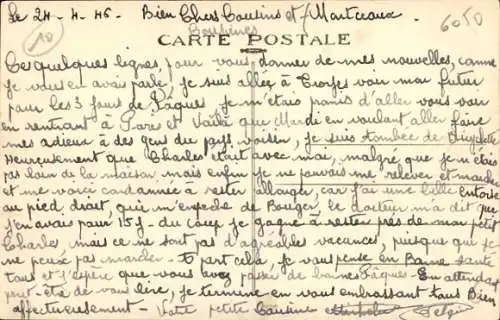 Le 24-4-46. Bien Chers Cousins et
Cousines
10
6050
CARTE POSTALE
Ces quelques lignes, pour vous donner de mes nouvelles, comme
je vous en avais parlé, je suis allée à voir mon futur
pour les 3 jours de Pâques je m'étais promis d'aller vous voir
en rentrant à Paris et voilà que Mardi en voulant aller faire
mes adieux à des gens du pays voisin, je suis tombée de bicyclette
Heureusement que Charles était avec moi, malgré que je n'étais
pas loin de la maison mais enfin je ne pouvais me relever et marcher
et me voici condamnée à rester allonger, car j'ai une belle entorse
au pied droit, qui m'empêche de Bouger. le docteur m'a dit que
j'en avais pour 15 j. du coup je gagne à rester près de mon petit
Charles, mais ce ne sont pas d'agréables vacances, puisque je
ne peux pas marcher - à part cela, je vous pense en Bonne santé
tous et j'espère que vous avez passé de bonnes Pâques. En attendant
peut-être de vous lire, je termine en vous embrassant tous Bien
affectueusement - Votre petite Cousine